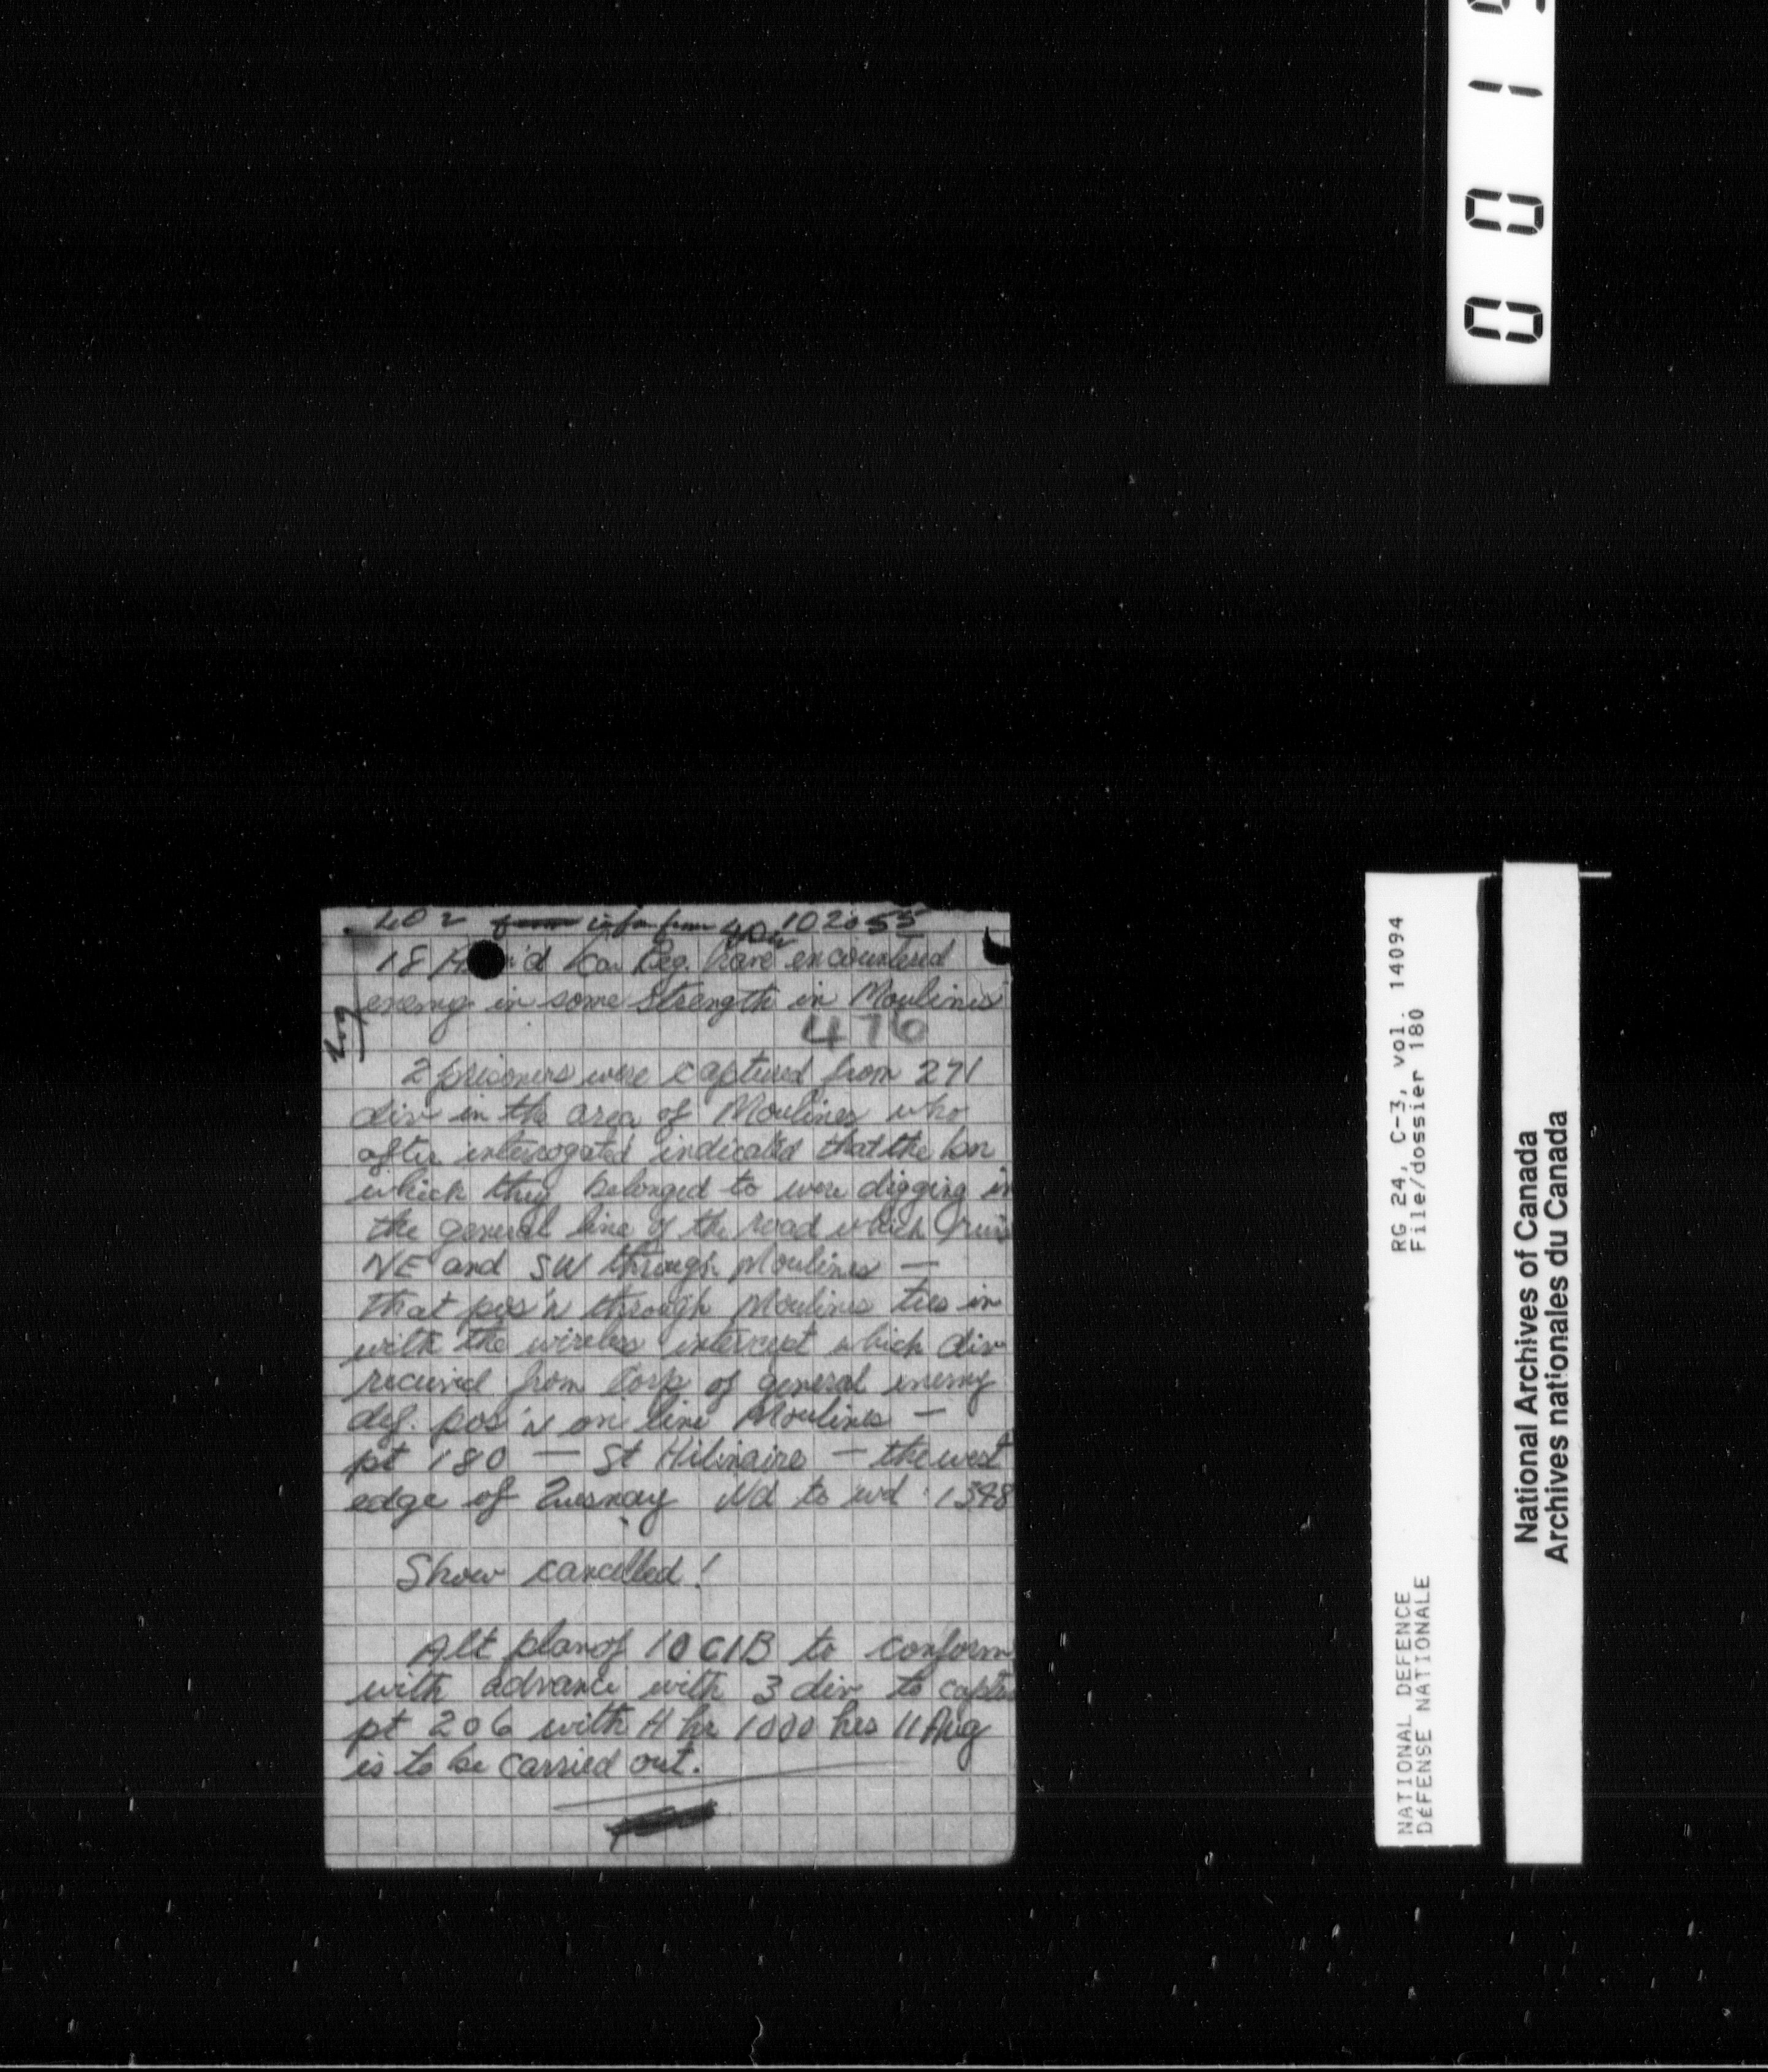 LO 2 info from 102055
18 Arm'd Car Reg. have encountered
enemy in some strength in Moulines
Log
476
2 prisoners were captured from 271
div in the area of Moulines who
after interrogated indicated that the bn
which they belonged to were digging in
the general line of the road which runs
NE and SW through Moulines —
that pos'n through Moulines ties in
with the wireless intercept which div
recieved from Corp of general enemy
def. pos'n on line Moulines —
pt 180 — St Hilinaire — the west
edge of Quesnay Wd to wd 1348
Show cancelled!
Alt plan of 10 CIB to conform
with advance with 3 div to captu
pt 206 with H hr 1000 hrs 11 Aug
is to be carried out.
0 0 1
RG 24, C-3, vol. 14094
File/dossier 180
NATIONAL DEFENCE
DéFENSE NATIONALE
National Archives of Canada
Archives nationales du Canada